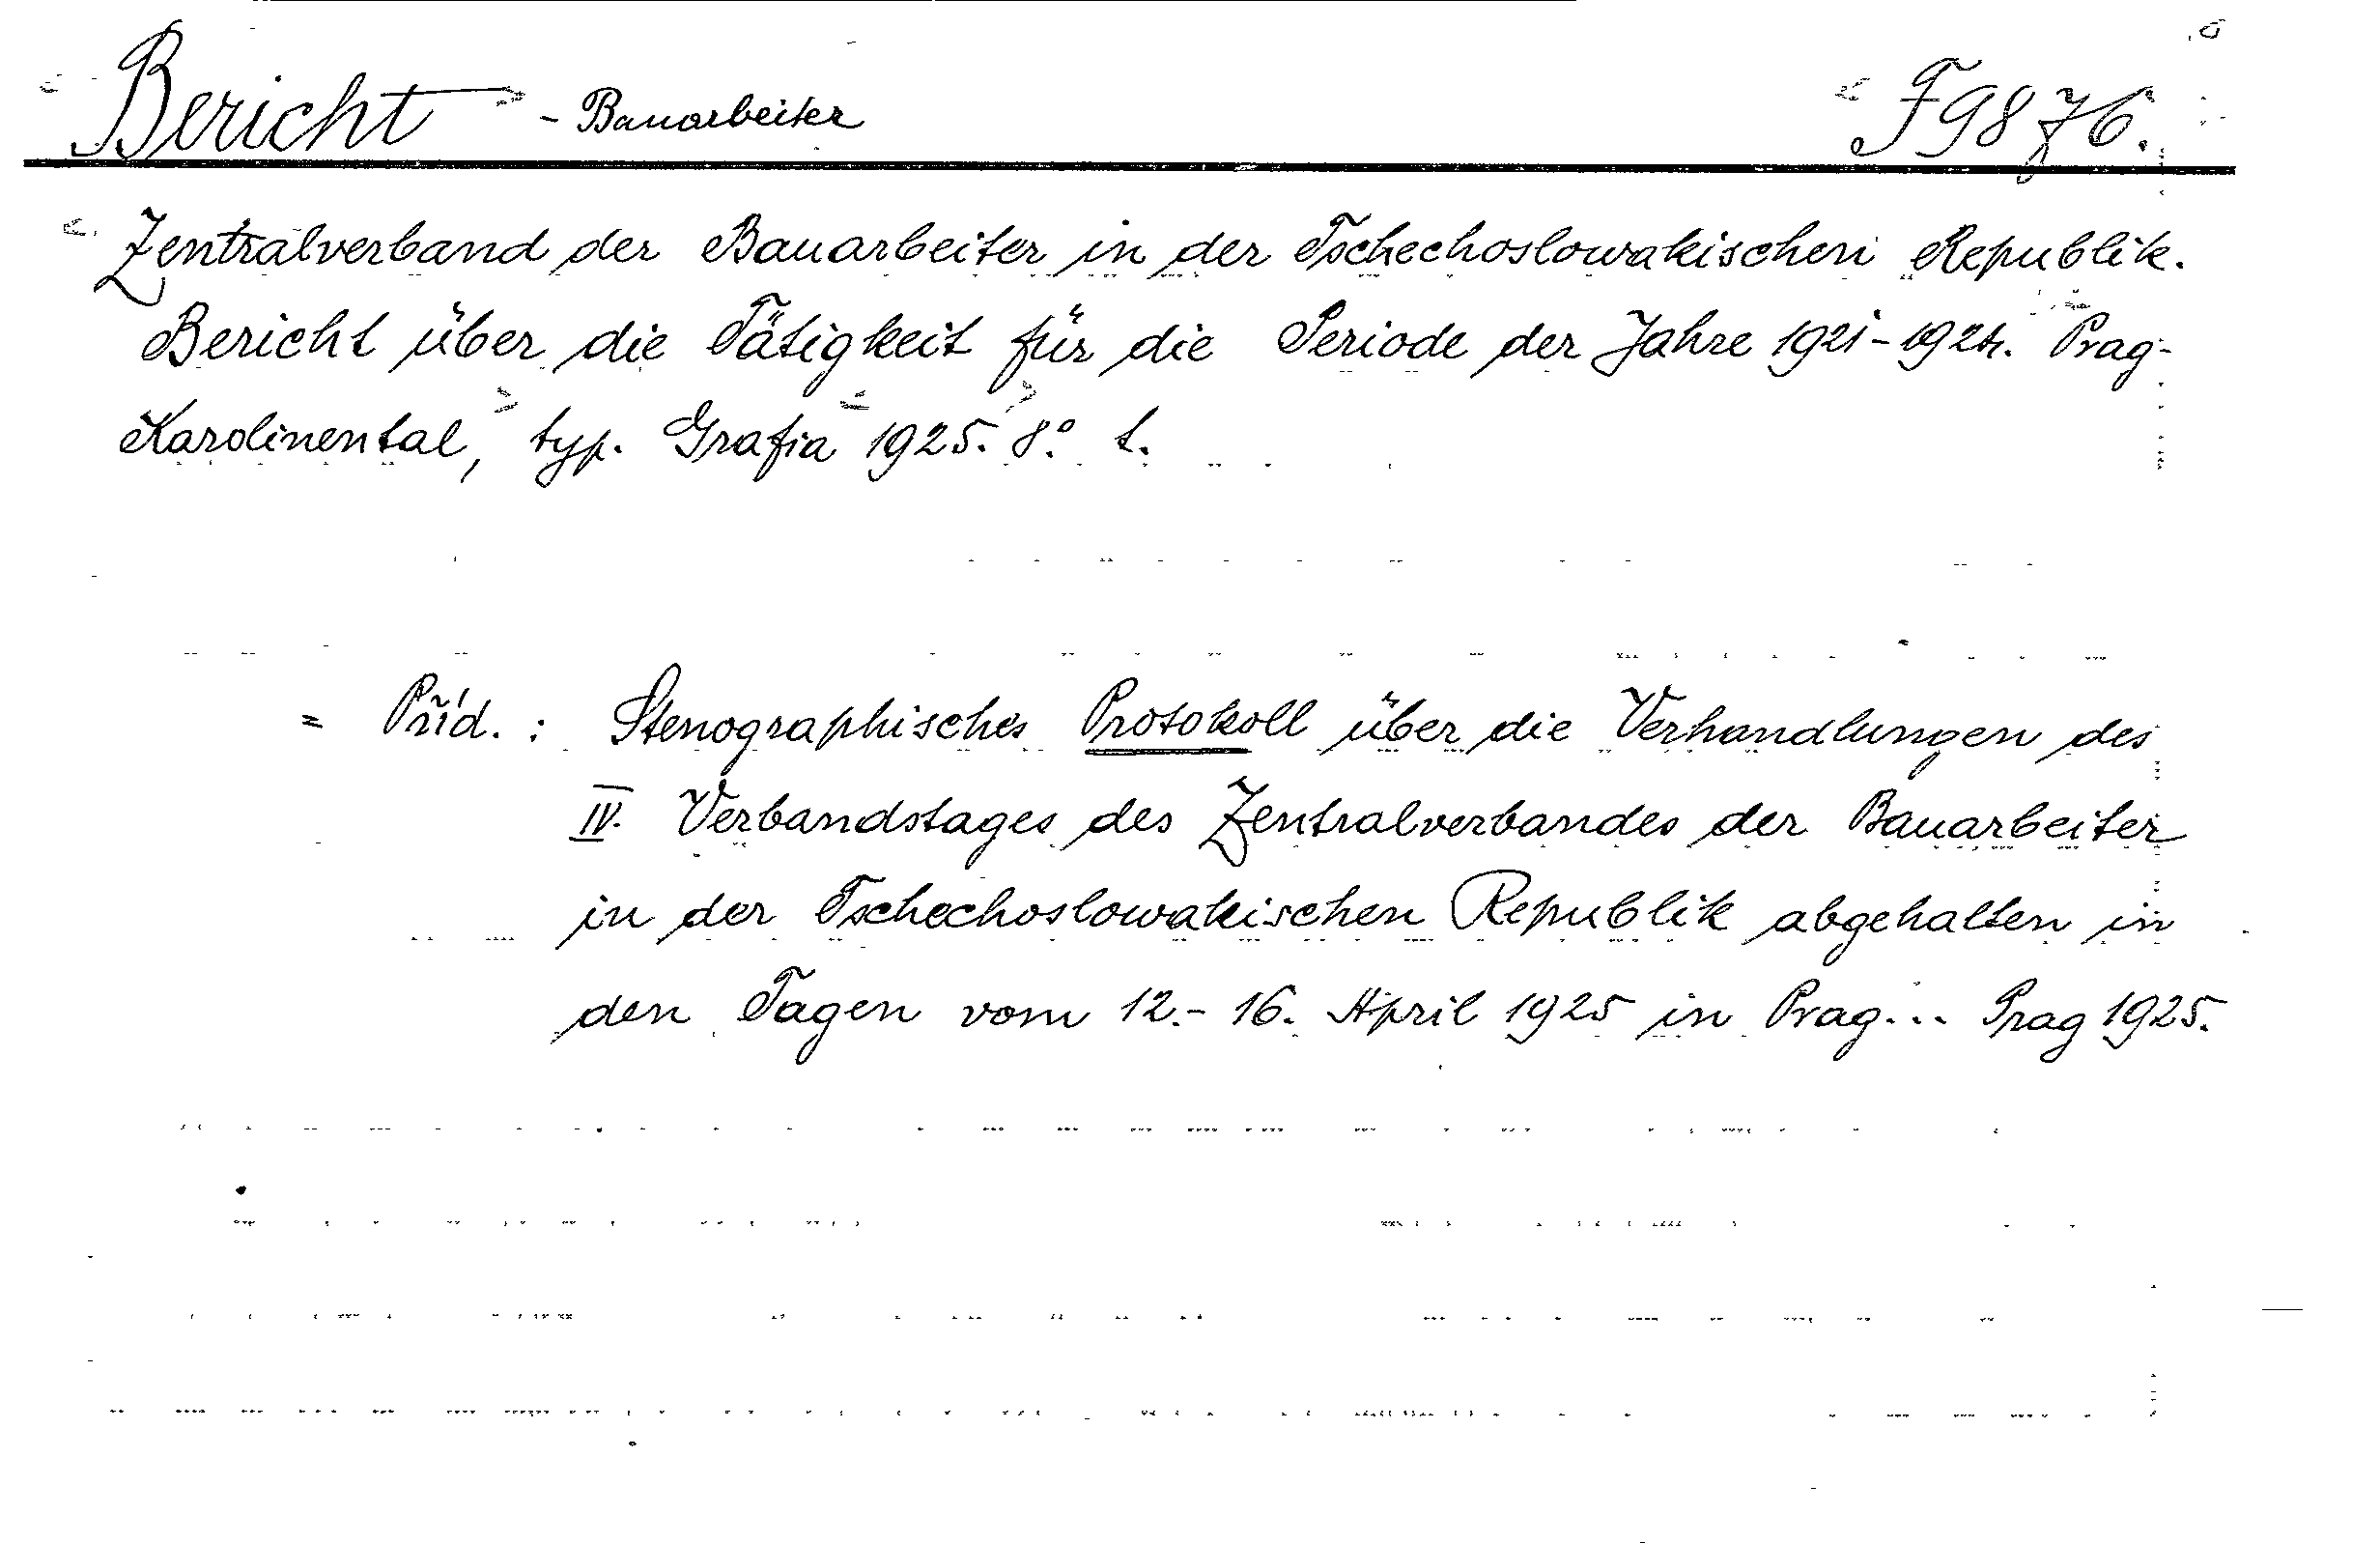 Bericht - Bauarbeiter F 9876.
Zentralverband der Bauarbeiter in der Tschechoslowakischen Republik.
Bericht über die Tätigkeit für die Periode der Jahre 1921-1924. Prag-
Karolinental, typ. Grafia 1925. 8°. t.
= Příd.: Stenographisches Protokoll über die Verhandlungen des
IV. Verbandstages des Zentralverbandes der Bauarbeiter
in der Tschechoslowakischen Republik abgehalten in
den Tagen vom 12.-16. April 1925 in Prag... Prag 1925.